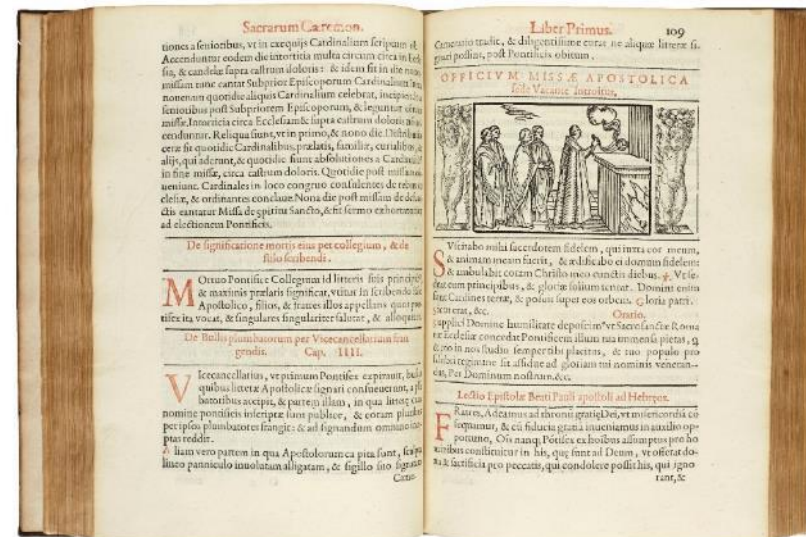 Sacrarum Cæremon.
tiones a senioribus, vt in exequijs Cardinalium scriptum est.
Accenduntur eodem die intortitia multa circum circa in Eccle
sia, & candelæ supra castrum doloris: & idem fit in die nono
missam tunc cantat Subprior Episcoporum Cardinalium
nouenam quotidie aliquis Cardinalium celebrat, incipiendo
senioribus post Subpriorem Episcoporum, & leguntur
missæ, Intorticia circa Ecclesiam & supra castrum doloris
cenduntur. Reliqua fiunt, vt in primo, & nono die. Distribu
ceræ fit quotidie Cardinalibus, prælatis, familiæ, curialibus, &
alijs, qui aderunt, & quotidie fiunt absolutiones a Cardinali
in fine missæ, circa castrum doloris. Quotidie post missam
ueniunt Cardinales in loco congruo consulentes de rebus
clesiæ, & ordinantes conclaue. Nona die post missam de defun
ctis cantatur Missa de spiritu Sancto, & fit sermo exhortatorius
ad electionem Pontificis.
De significatione mortis eius per collegium, & de
stilo scribendi.
MOrtuo Pontifice Collegium id litteris suis principibus
& maximis prælatis significat, vtitur in scribendo stilo
Apostolico, filios, & fratres illos appellans quos pon
tifex ita vocat, & singulares singulariter salutat, & alloquitur
De Bullis plumbatorum per Vicecancellarium fran
gendis. Cap. IIII.
VIcecancellarius, vt primum Pontifex expirauit, bullas
quibus litteræ Apostolicæ signari consueuerunt, a plum
batoribus accipit, & partem illam, in qua litteræ cum
nomine pontificis inscriptæ sunt publice, & coram pluribus
per ipsos plumbatores frangit: & ad signandum omnino inep
ptas reddit.
Aliam vero partem in qua Apostolorum capita sunt, scalpta
lineo panniculo inuolutam alligatam, & sigillo suo signatam
Came-
Liber Primus. 109
Camerario tradit, & diligentissime curat ne aliquæ litteræ si-
gnari possint, post Pontificis obitum.
OFFICIVM MISSÆ APOSTOLICA
Sede Vacante Introitus.
SVscitabo mihi sacerdotem fidelem, qui iuxta cor meum,
& animam meam faciet, & ædificabo ei domum fidelem:
& ambulabit coram Christo meo cunctis diebus. Vt se-
deat cum principibus, & gloriæ solium teneat. Domini enim
sunt Cardines terræ, & posuit super eos orbem. Gloria patri.
Sicut erat, &c.
Oratio.
Supplici Domine humilitate deposcimus vt Sacrosanctæ Roma
næ Ecclesiæ concedat Pontificem illum tua immensa pietas, q
& pio in nos studio semper tibi placitus, & tuo populo pro
salubri regimine sit assidue ad gloriam tui nominis veneran-
dus, Per Dominum nostrum. &c.
Lectio Epistolæ Beati Pauli apostoli ad Hebreos.
FRatres, Adeamus ad thronum gratiæ Dei, vt misericordiã cõ
sequamur, & cũ fiducia gratiã inueniamus in auxilio op-
portuno, Oĩs nanq; Põtifex ex hoĩbus assumptus pro ho
minibus constituitur in his, quę sunt ad Deum, vt offerat do-
na & sacrificia pro peccatis, qui condolere possit his, qui igno
rant, &